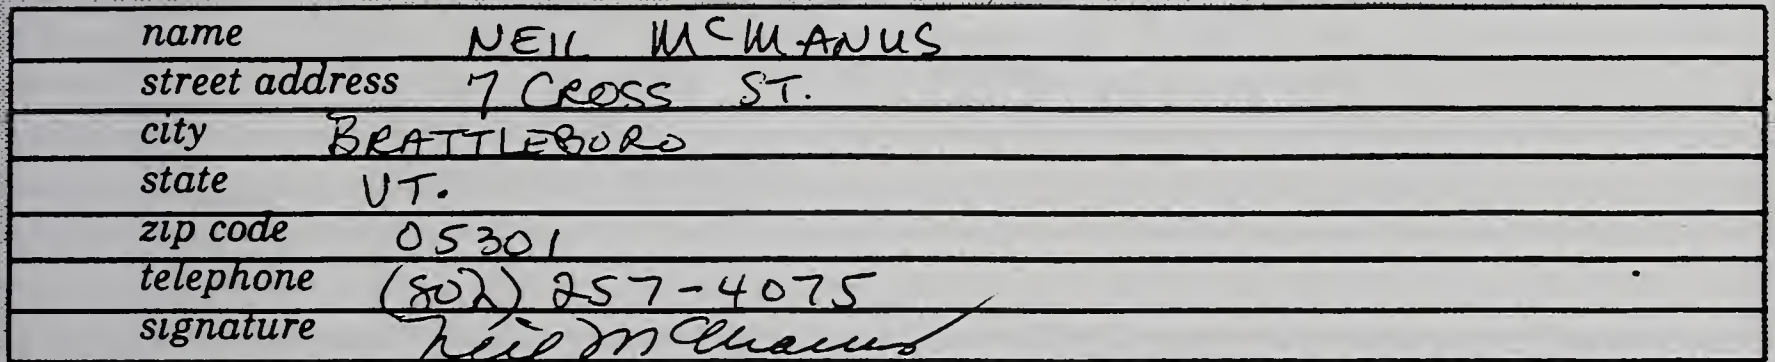 name NEIL McMANUS
street address 7 CROSS ST.
city BRATTLEBORO
state VT.
zip code 05301
telephone (802) 257-4075
signature Neil McManus